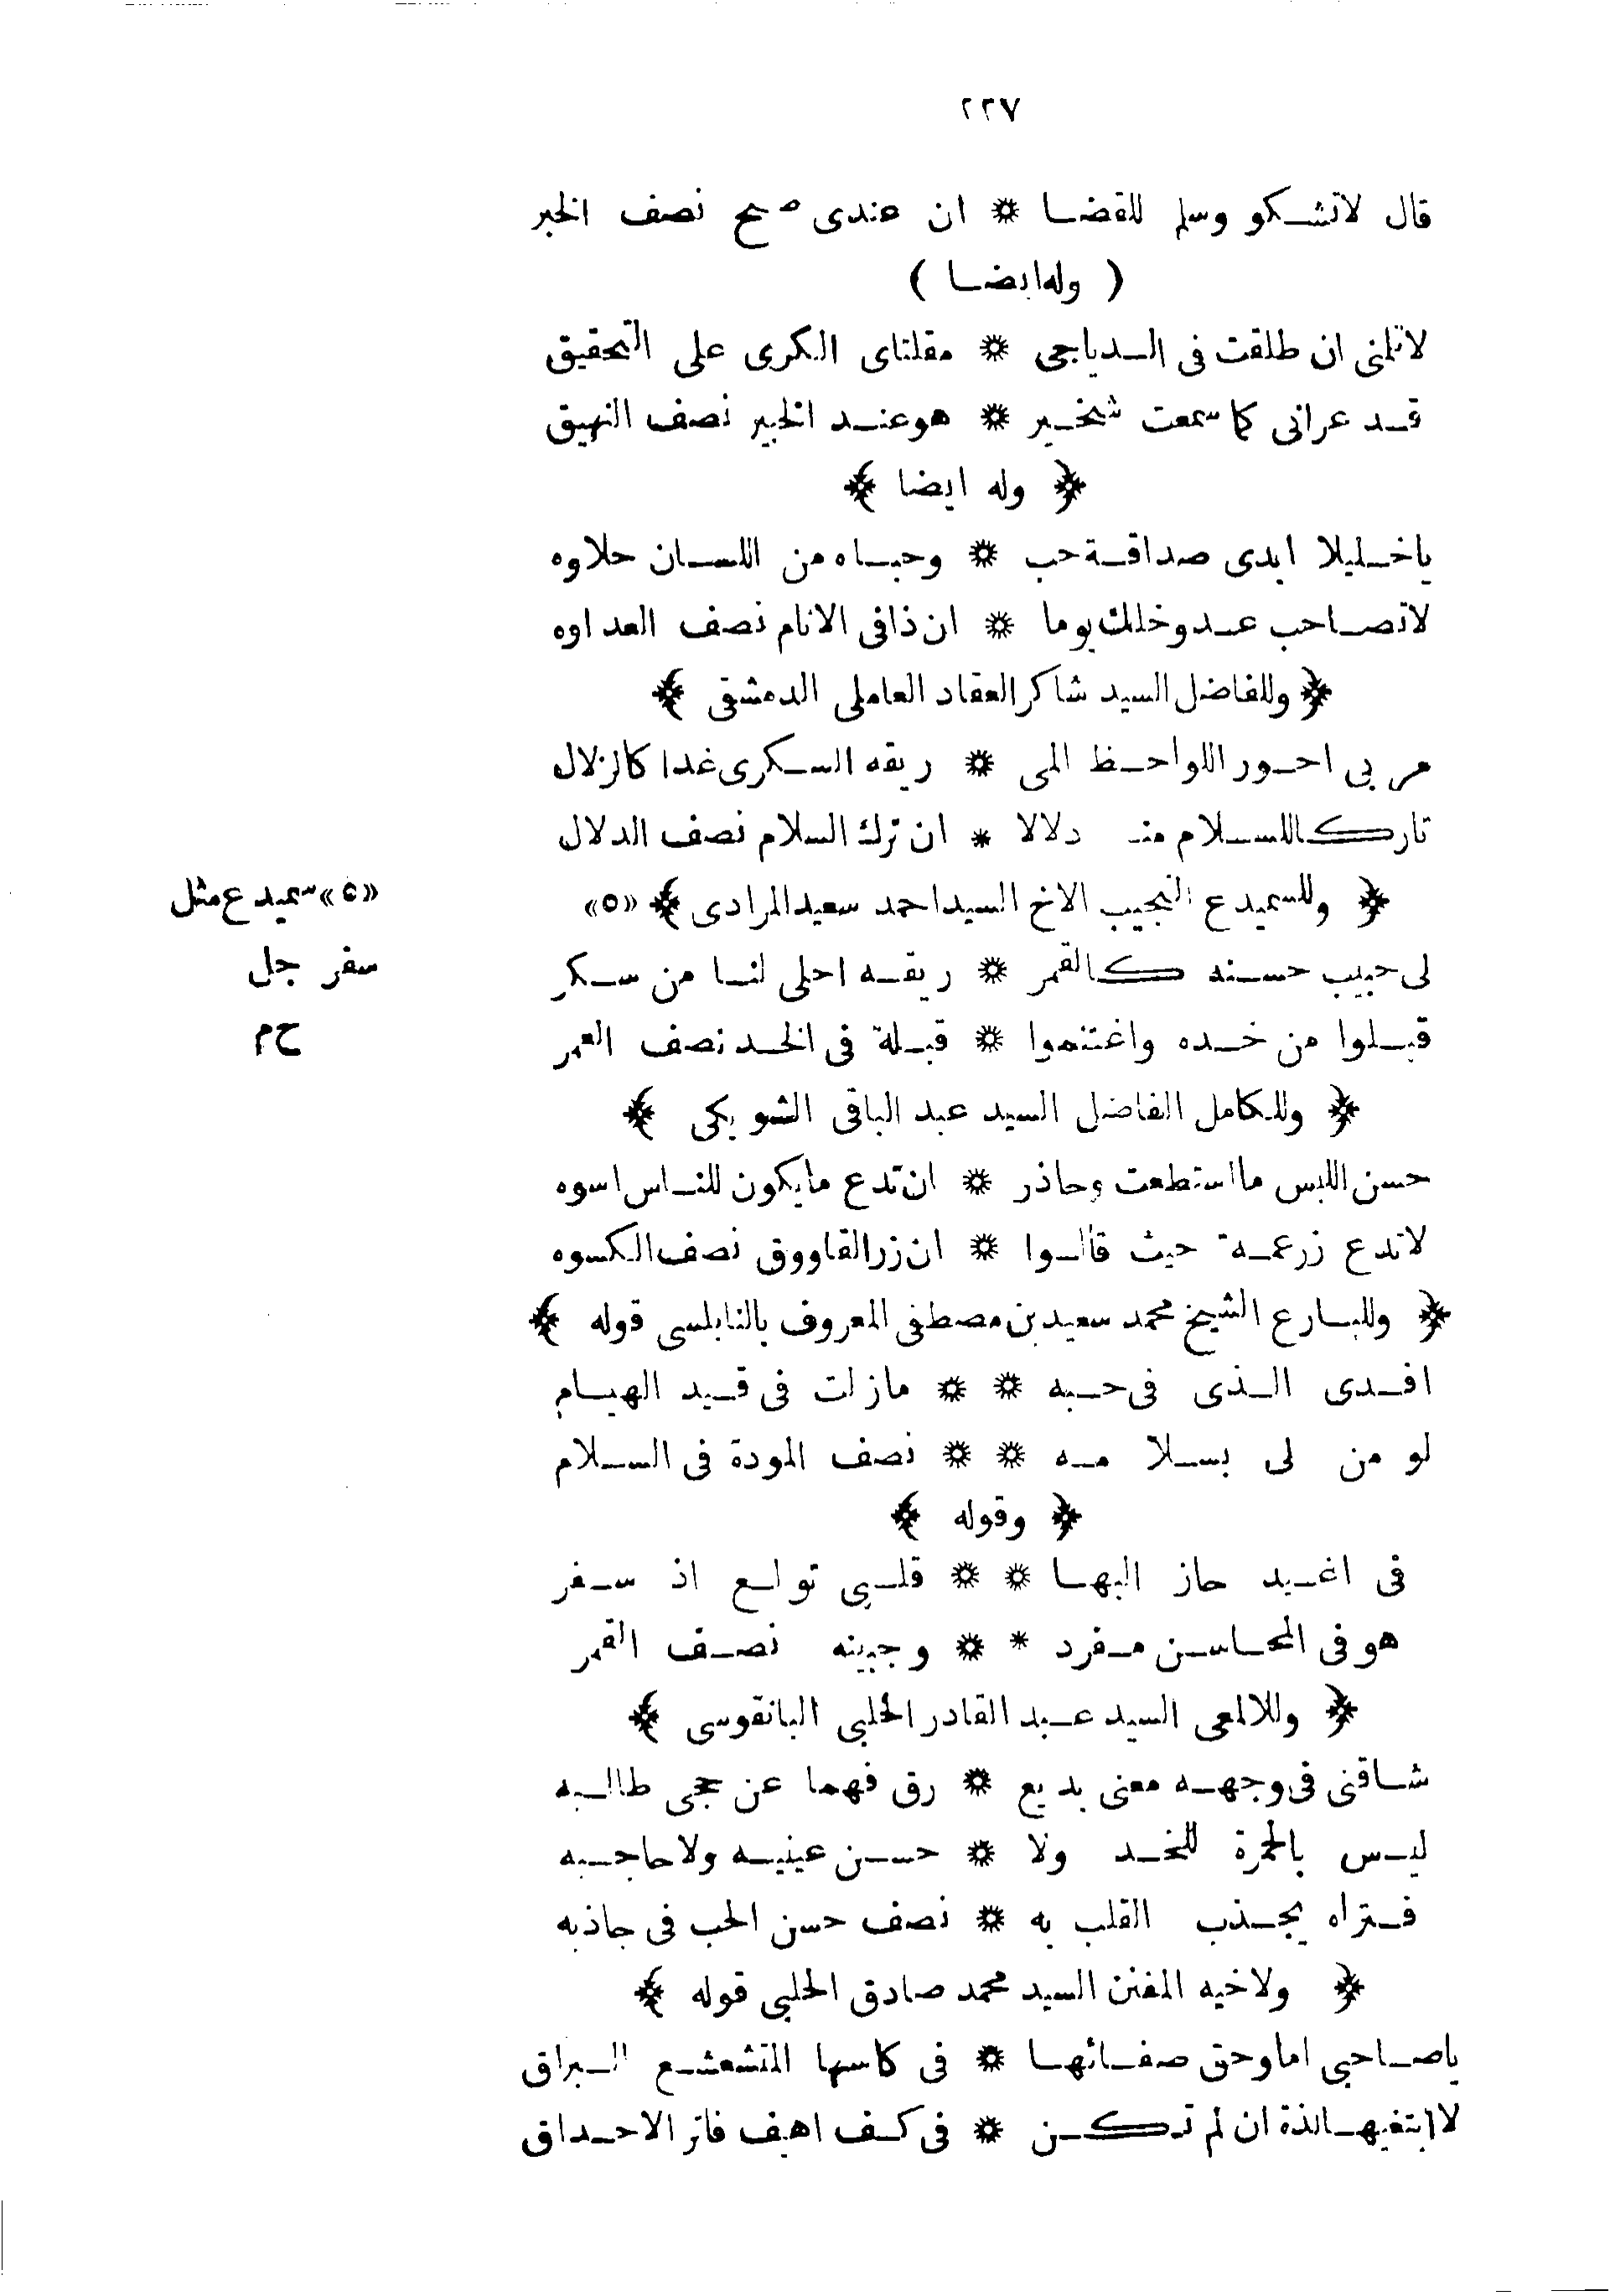 ٢٢٧
قال لاتشكو وسلم للقضا * ان عندى صح نصف الخبر
( وله ايضا )
لاتلنى ان طلقت فى الدياجى * مقلتاى الكرى على التحقيق
قد عرانى كما سمعت شخير * هو عند الخبير نصف النهيق
﴿ وله ايضا ﴾
ياخليلا ابدى صداقة حب * وحباه من اللسان حلاوه
لاتصاحب عدو خلك يوما * ان ذا فى الانام نصف العداوه
﴿ وللفاضل السيد شاكر العقاد العاملى الدمشقى ﴾
مر بى احور اللواحظ المى * ريقه السكرى غدا كالزلال
تاركا للسلام منه دلالا * ان ترك السلام نصف الدلال
﴿ وللسميدع النجيب الاخ السيد احمد سعيد المرادى ﴾ «٥»
«٥» سميدع مثل
سفر جل
ح م
لى حبيب حسنه كالقمر * ريقه احلى لنا من سكر
قبلوا من خده واغتنموا * قبلة فى الخد نصف العمر
﴿ وللكامل الفاضل السيد عبد الباقى الشويكى ﴾
حسن اللبس ما استطعت وحاذر * ان تدع مايكون للناس اسوه
لاتدع زرعمة حيث قالوا * ان زر القاووق نصف الكسوه
﴿ وللبارع الشيخ محمد سعيد بن مصطفى المعروف بالنابلسى قوله ﴾
افدى الذى فى حبه * * مازلت فى قيد الهيام
لو من لى بسلامه * * نصف المودة فى السلام
﴿ وقوله ﴾
فى اغيد حاز البها * * قلبى تولع اذ سفر
هو فى المحاسن مفرد * * وجبينه نصف القمر
﴿ وللالمعى السيد عبد القادر الحلبى البانقوسى ﴾
شاقنى فى وجهه معنى بديع * رق فهما عن حجى طالبه
ليس بالحمرة للخد ولا * حسن عينيه ولا حاجبه
فتراه يجذب القلب به * نصف حسن الحب فى جاذبه
﴿ ولاخيه المفنن السيد محمد صادق الحلبى قوله ﴾
ياصاحبى اما وحق صفائها * فى كاسها المتشعشع البراق
لا ابتغيها لذة ان لم تكن * فى كف اهيف فاتر الاحداق